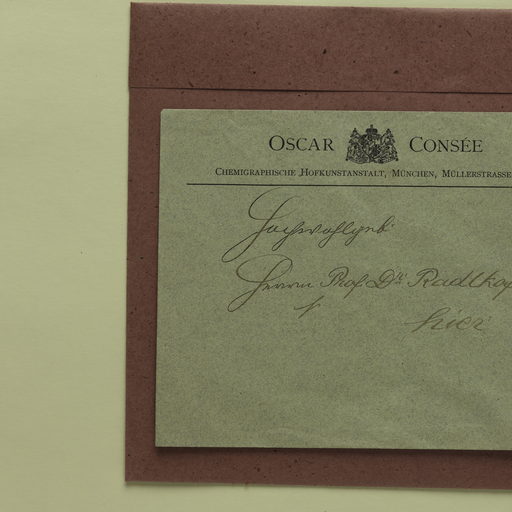 OSCAR CONSÉE
CHEMIGRAPHISCHE HOFKUNSTANSTALT, MÜNCHEN, MÜLLERSTRASSE
Hochwohlgeb.
Herrn Prof. Dr. Radlkof
hier